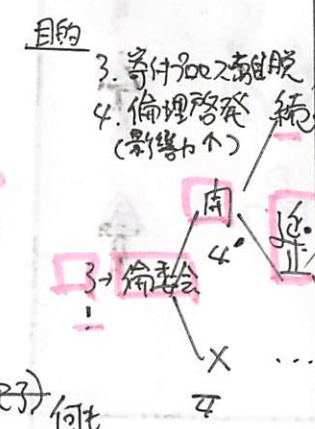 目的
3. 寄付プロセス離脱
4. 倫理啓発
(影響力↑)
続
開
4'
3→ 倫委会
!
× ...
4
何も